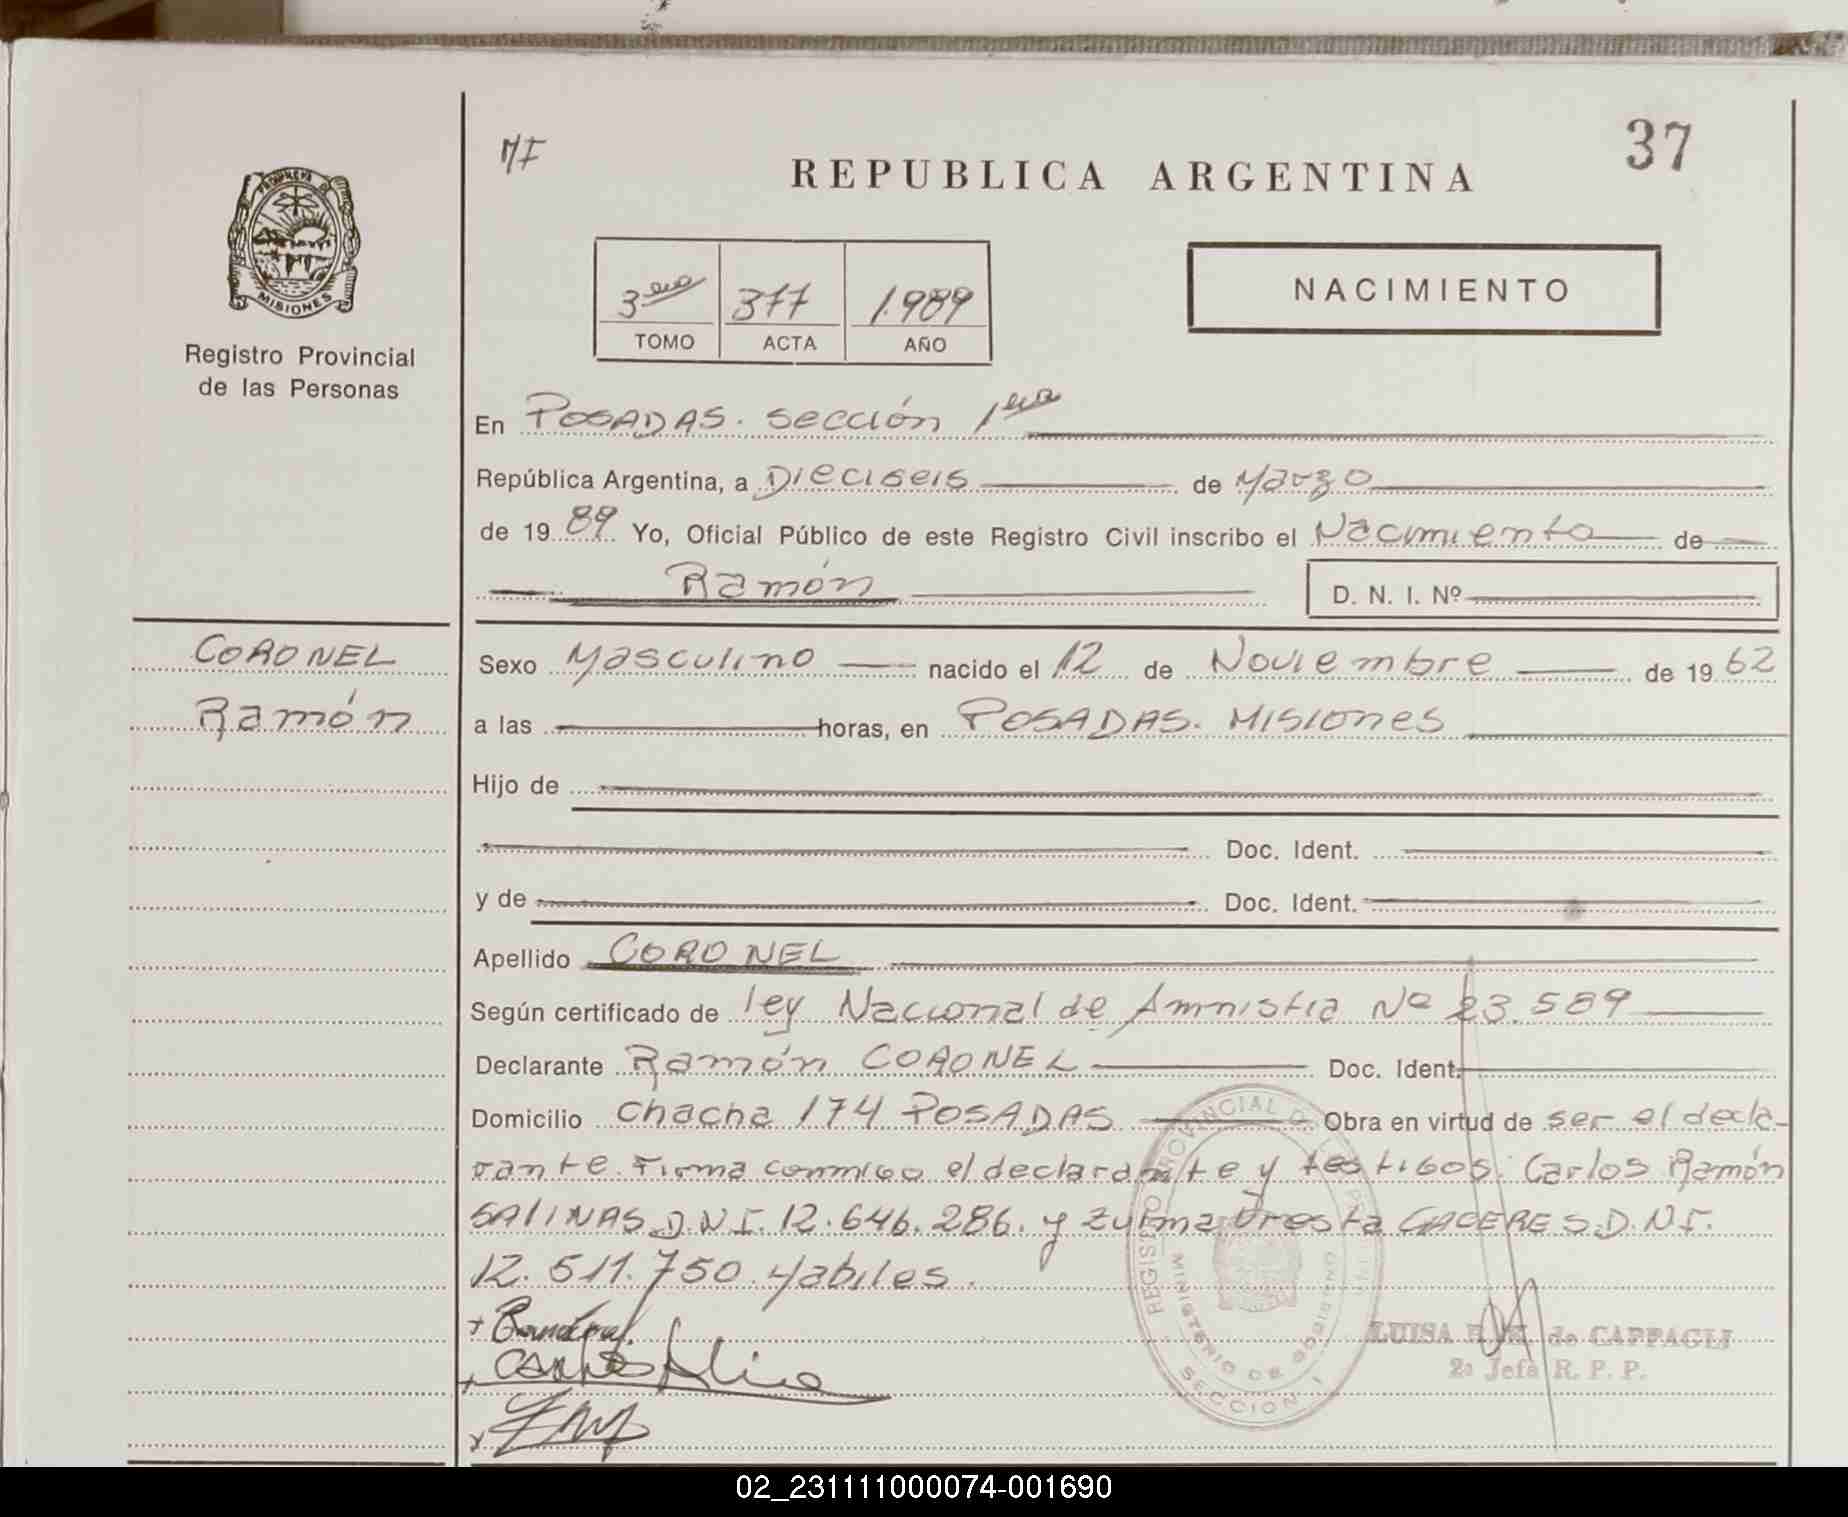 MI
37
REPUBLICA ARGENTINA
PROVINCIA DE
MISIONES
Registro Provincial
de las Personas
3era 377 1.989
TOMO ACTA AÑO
NACIMIENTO
En POSADAS. sección 1era
República Argentina, a Dieciseis de Marzo
de 19 89 Yo, Oficial Público de este Registro Civil inscribo el Nacimiento de
Ramón D. N. I. Nº
CORONEL
Ramón
Sexo Masculino nacido el 12 de Noviembre de 19 62
a las horas, en POSADAS. Misiones
Hijo de
Doc. Ident.
y de Doc. Ident.
Apellido CORONEL
Según certificado de ley Nacional de Amnistia Nº 23.589
Declarante Ramón CORONEL Doc. Ident.
Domicilio chacha 174 POSADAS Obra en virtud de ser el decla-
rante. Firma conmigo el declarante y testigos: Carlos Ramón
SALINAS D.N.I. 12.646.286. y Zulma Oresta CACERES. D.N.I.
12.511.750. Habiles.
REGISTRO PROVINCIAL DE LAS PERSONAS
MINISTERIO DE GOBIERNO
SECCION 1
LUISA de CAPPAGLI
2ª Jefa R. P. P.
02_231111000074-001690